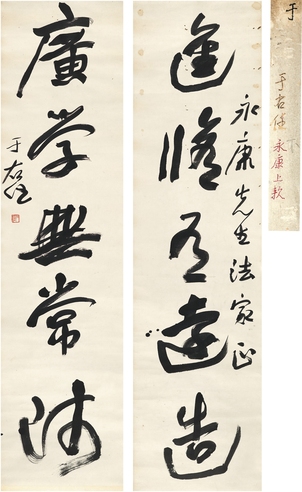 進脩有遠造
永康先生法家正
廣學無常師
于右任
于
于右任 永康上款